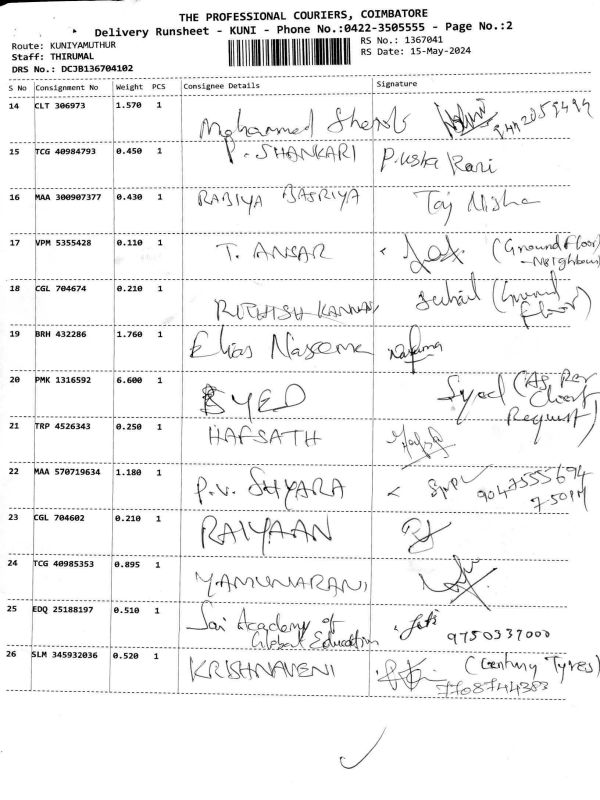 THE PROFESSIONAL COURIERS, COIMBATORE
Delivery Runsheet - KUNI - Phone No.:0422-3505555 - Page No.:2
Route: KUNIYAMUTHUR
RS No.: 1367041
Staff: THIRUMAL
RS Date: 15-May-2024
DRS No.: DCJB136704102
S No Consignment No Weight PCS Consignee Details Signature
14 CLT 306973 1.570 1 Mohammed
15 TCG 40984793 0.450 1 P. SHANKARI P.usha Rani
16 MAA 300907377 0.430 1 RABIYA BASRIYA Taj Nisha
17 VPM 5355428 0.110 1 T. ANSAR (Ground Floor)
-Neighbour
18 CGL 704674 0.210 1 RITHISH KANNAN Suhail (Ground
Floor)
19 BRH 432286 1.760 1 Elias Naseema
20 PMK 1316592 6.600 1 SYED Syed (As Per
Client
Request)
21 TRP 4526343 0.250 1 HAFSATH
22 MAA 570719634 1.180 1 P.V. SHYARA 9047555694
7-50PM
23 CGL 704602 0.210 1 RAIYAAN
24 TCG 40985353 0.895 1 YAMUNARANI
25 EDQ 25188197 0.510 1 Sai Academy of
Global Education 9750337000
26 SLM 345932036 0.520 1 KRISHNAVENI (Century Tyres)
7708744383